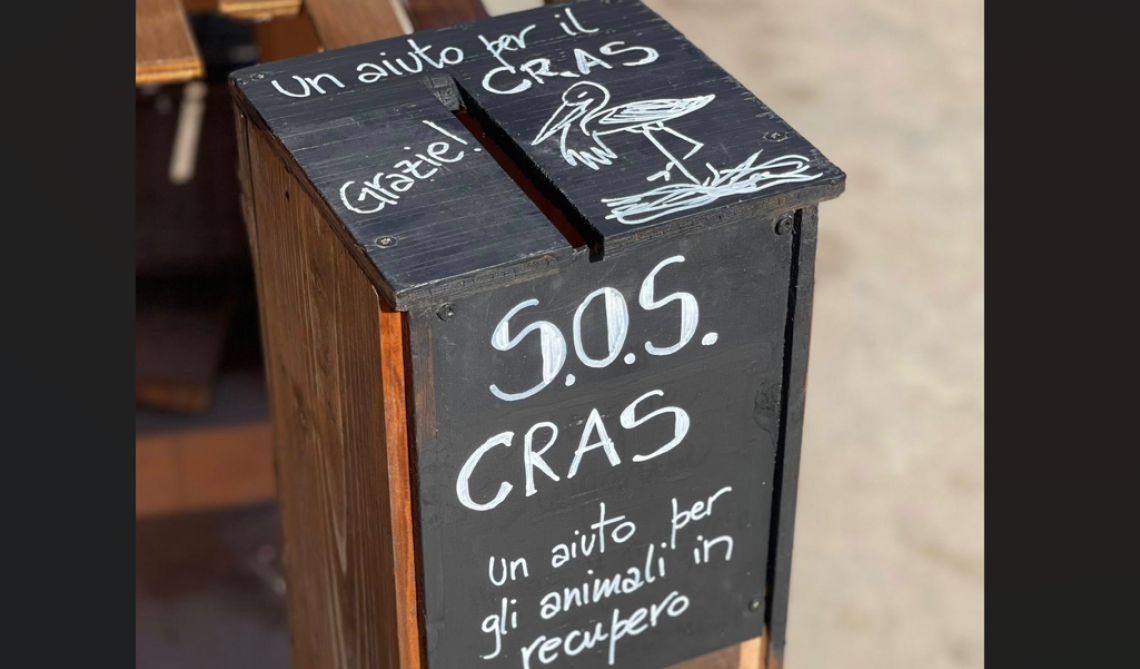 Un aiuto per il
CRAS
Grazie!
S.O.S.
CRAS
un aiuto per
gli animali in
recupero